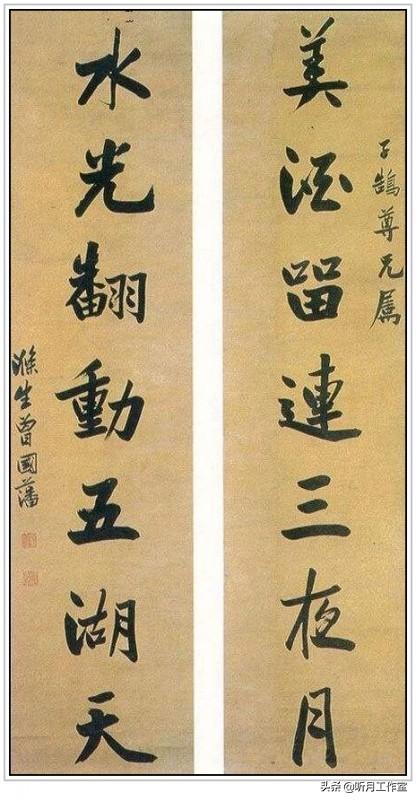 子鵠尊兄屬
美酒留連三夜月
水光翻動五湖天
滌生曾國藩
头条@听月工作室